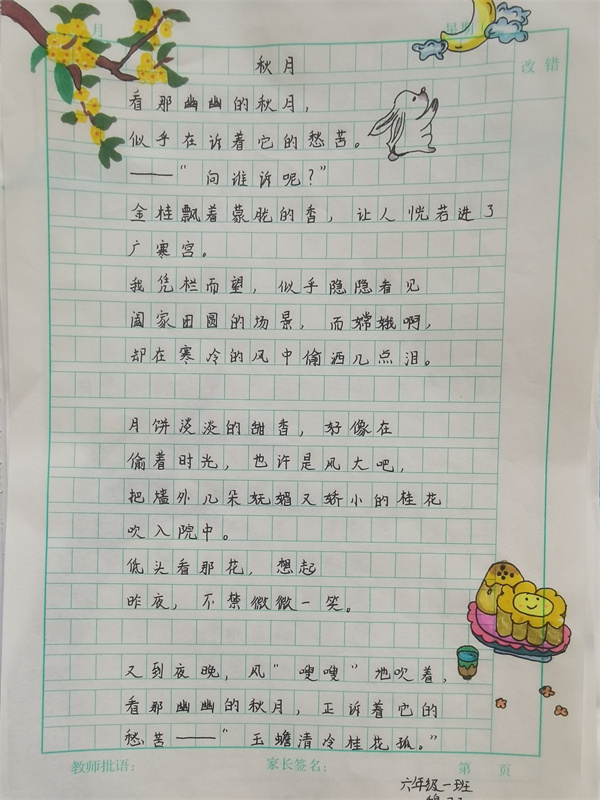 月
星期
改错
秋月
看那幽幽的秋月，
似乎在诉着它的愁苦。
——“向谁诉呢？”
金桂飘着蒙胧的香，让人恍若进了
广寒宫。
我凭栏而望，似乎隐隐看见
阖家团圆的场景，而嫦娥啊，
却在寒冷的风中偷洒几点泪。
月饼淡淡的甜香，好像在
偷着时光，也许是风大吧，
把墙外几朵妩媚又娇小的桂花
吹入院中。
低头看那花，想起
昨夜，不禁微微一笑。
又到夜晚，风“嗖嗖”地吹着，
看那幽幽的秋月，正诉着它的
愁苦——“玉蟾清冷桂花孤。”
教师批语：
家长签名：
第 页
六年级一班